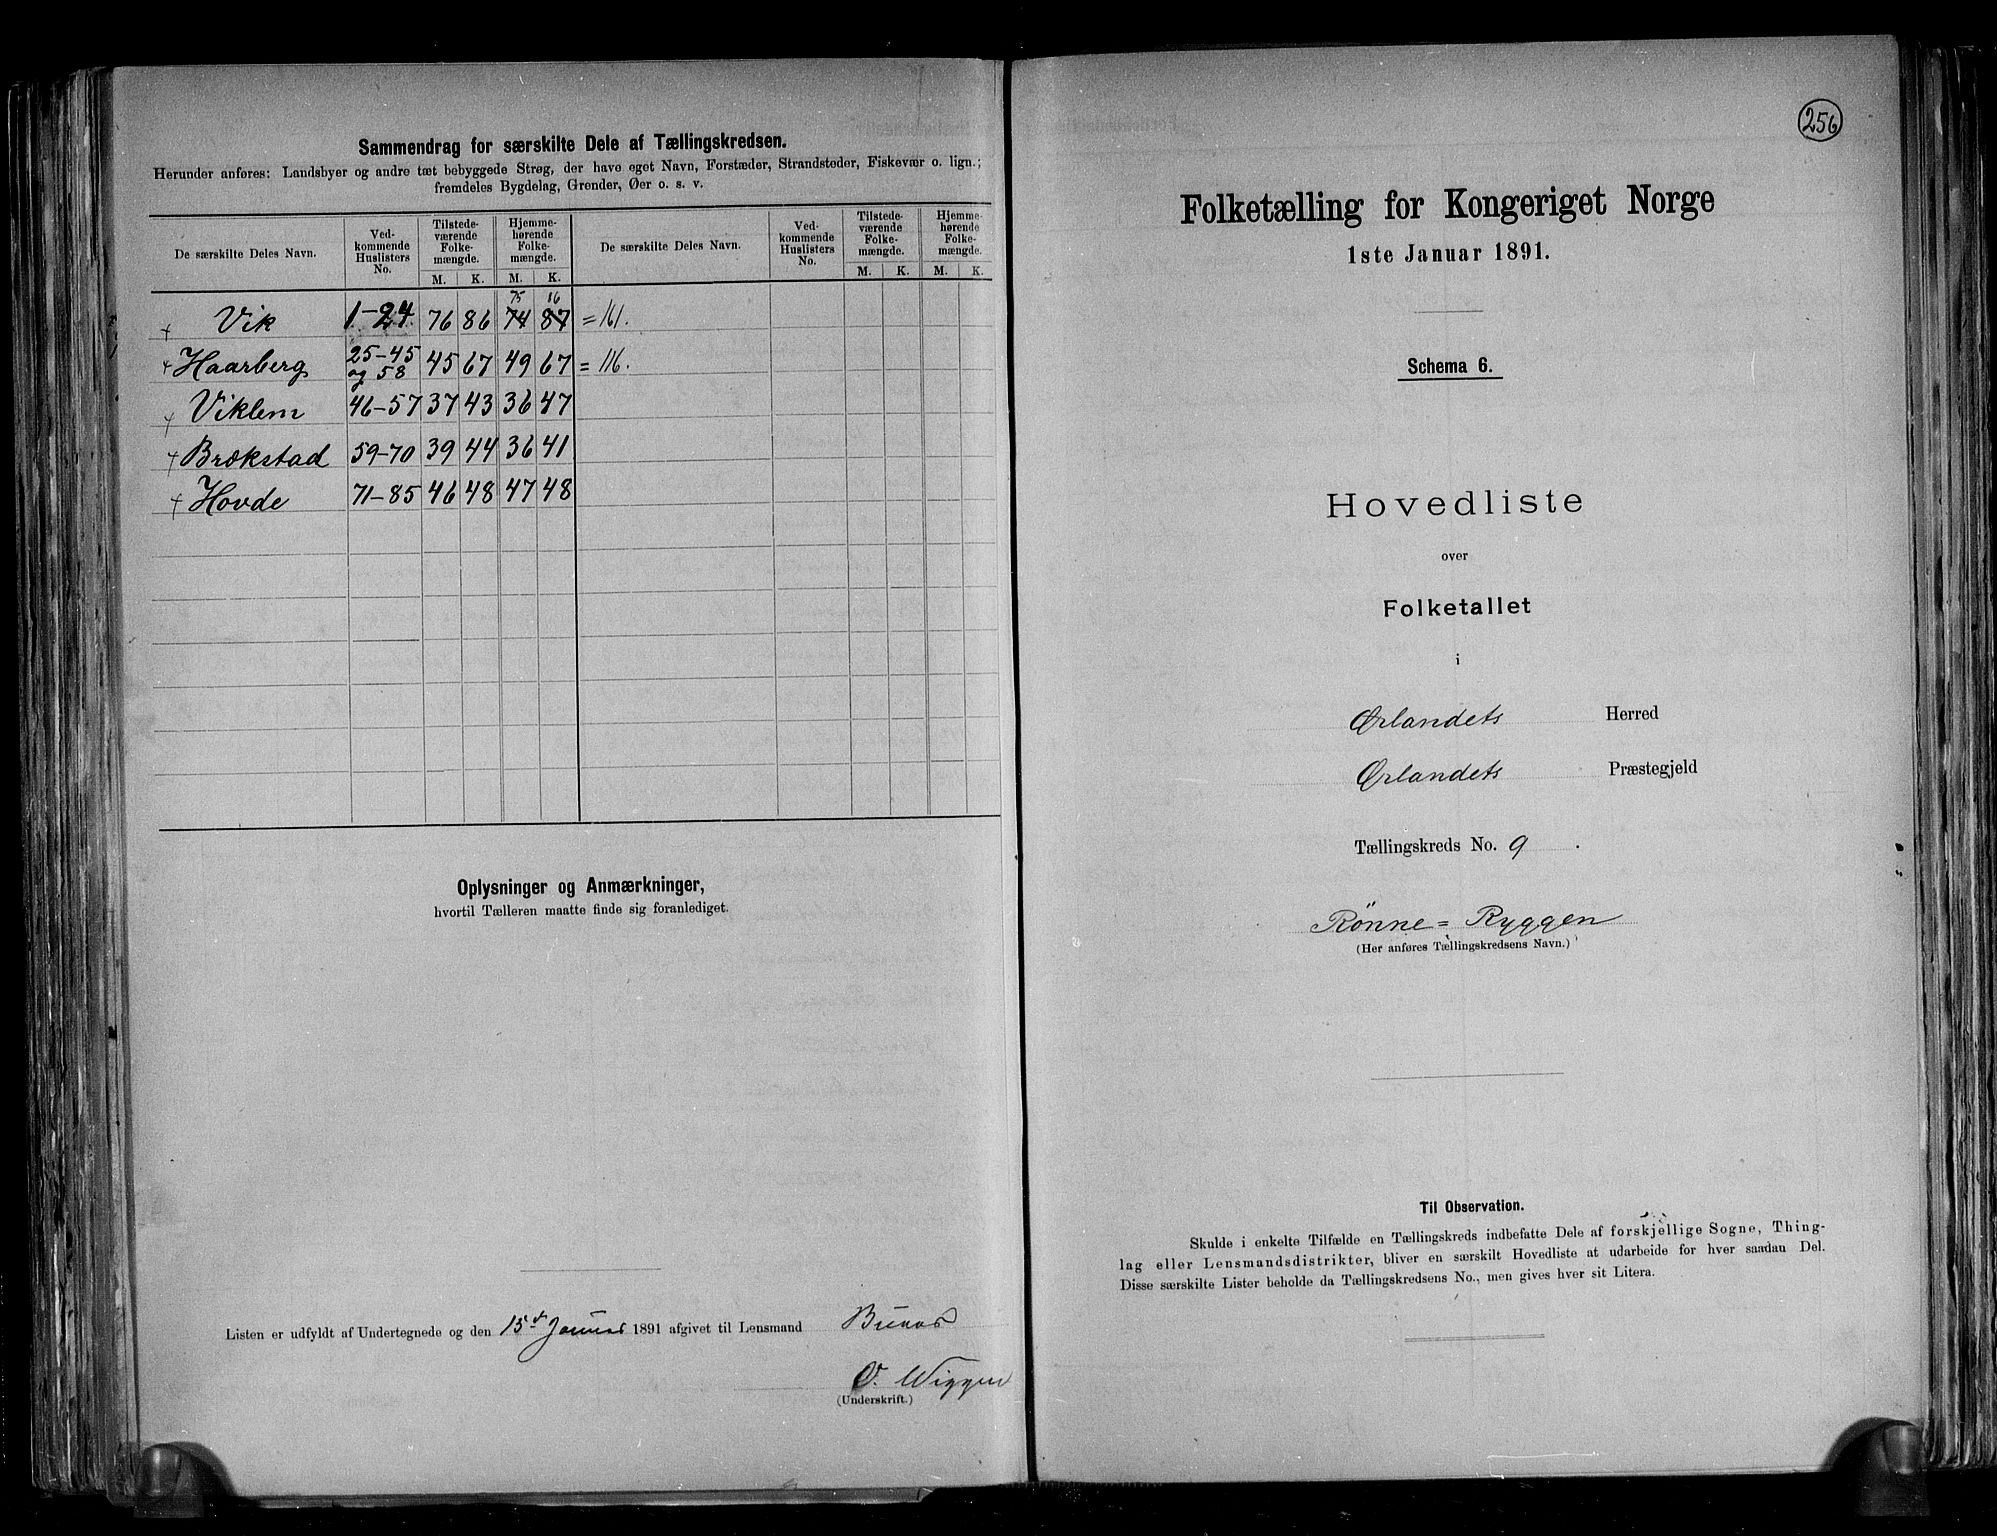 Sammendrag for særskilte Dele af Tællingskredsen.
Herunder anføres: Landsbyer og andre tæt bebyggede Strøg, der have eget Navn, Forstæder, Strandsteder, Fiskevær o. lign.;
fremdeles Bygdelag, Grender, Øer o. s. v.
De særskilte Deles Navn. Ved- kommende Huslisters No. Tilstede- værende Folke- mængde. Hjemme- hørende Folke- mængde. De særskilte Deles Navn. Ved- kommende Huslisters No. Tilstede- værende Folke- mængde. Hjemme- hørende Folke- mængde.
M. K. M. K. M. K. M. K.
75
Vik 1-24 76 86 74 87 = 161.
Haarberg 25-45 og 58 45 67 49 67 = 116.
Viklem 46-57 37 43 36 47
Brækstad 59-70 39 44 36 41
Hovde 71-85 46 48 47 48
Oplysninger og Anmærkninger,
hvortil Tælleren maatte finde sig foranlediget.
Listen er udfyldt af Undertegnede og den 15d Januar 1891 afgivet til Lensmand
O. Wiggen
(Underskrift.)
256
Folketælling for Kongeriget Norge
1ste Januar 1891.
Schema 6.
Hovedliste
over
Folketallet
i
Ørlandets Herred
Ørlandets Præstegjeld
Tællingskreds No. 9.
Rønne=Ryggen
(Her anføres Tællingskredsens Navn.)
Til Observation.
Skulde i enkelte Tilfælde en Tællingskreds indbefatte Dele af forskjellige Sogne, Thing-
lag eller Lensmandsdistrikter, bliver en særskilt Hovedliste at udarbeide for hver saadan Del.
Disse særskilte Lister beholde da Tællingskredsens No., men gives hver sit Litera.